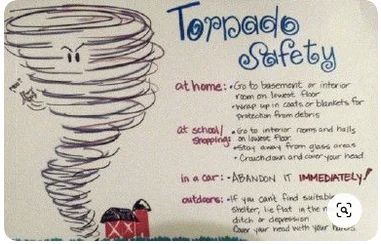 Tornado
Safety
at home: • Go to basement or interior
room on lowest floor
• Wrap up in coats or blankets for
protection from debris
at school/
shopping: • Go to interior rooms and halls
on lowest floor
• Stay away from glass areas
• Crouch down and cover your head
in a car: • ABANDON IT IMMEDIATELY!
outdoors: • If you can't find suitable
shelter, lie flat in the
ditch or depression
Cover your head with your hands